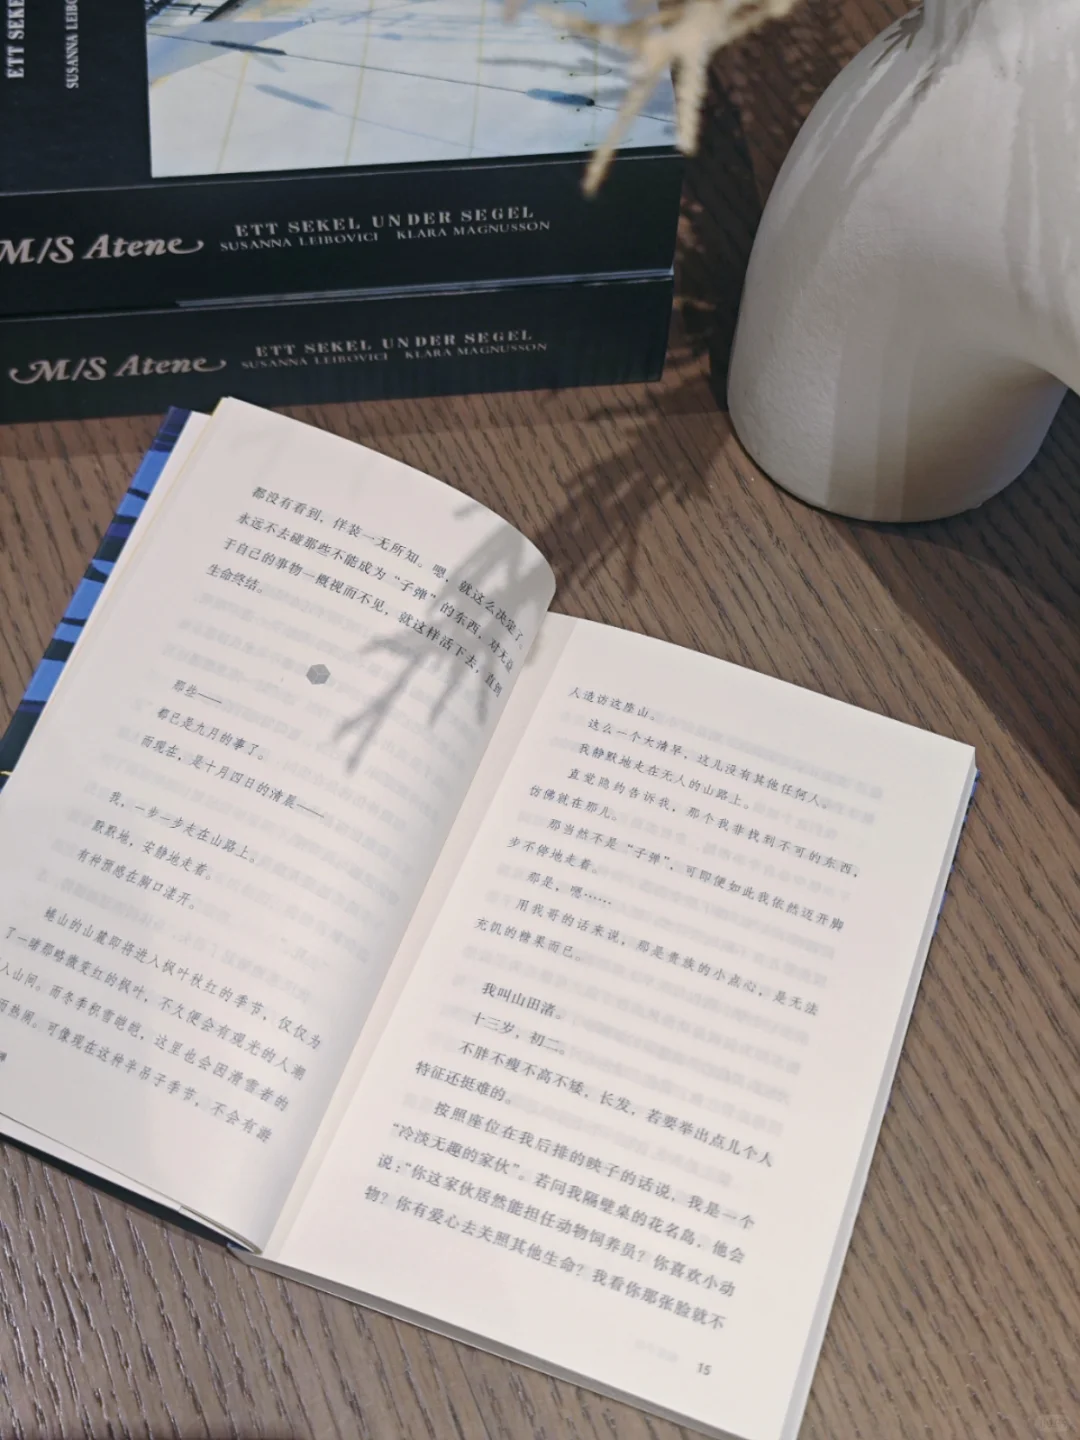 ETT SEKE
SUSANNA LEIBO
M/S Atene
ETT SEKEL UNDER SEGEL
SUSANNA LEIBOVICI KLARA MAGNUSSON
M/S Atene
ETT SEKEL UNDER SEGEL
SUSANNA LEIBOVICI KLARA MAGNUSSON
都没有看到，佯装一无所知。嗯，就这么决定了。
永远不去碰那些不能成为“子弹”的东西，对无益
于自己的事物一概视而不见，就这样活下去，直到
生命终结。
那些——
都已是九月的事了。
而现在，是十月四日的清晨——
我，一步一步走在山路上。
默默地，安静地走着。
有种预感在胸口漾开。
蜷山的山麓即将进入枫叶秋红的季节，仅仅为
了一睹那略微变红的枫叶，不久便会有观光的人潮
入山间。而冬季积雪皑皑，这里也会因滑雪者的
而热闹。可像现在这种半吊子季节，不会有游
人造访这座山。
这么一个大清早，这儿没有其他任何人。
我静默地走在无人的山路上。
直觉隐约告诉我，那个我非找到不可的东西，
仿佛就在那儿。
那当然不是“子弹”，可即便如此我依然迈开脚
步不停地走着。
那是，嗯……
用我哥的话来说，那是贵族的小点心，是无法
充饥的糖果而已。
我叫山田渚。
十三岁，初二。
不胖不瘦不高不矮，长发，若要举出点儿个人
特征还挺难的。
按照座位在我后排的映子的话说，我是一个
“冷淡无趣的家伙”。若问我隔壁桌的花名岛，他会
说：“你这家伙居然能担任动物饲养员？你喜欢小动
物？你有爱心去关照其他生命？我看你那张脸就不
15